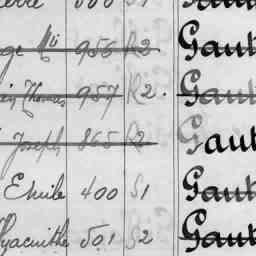 ge Mti 956 R2 Gaut
Thomas 957 R2. Gaut
Joseph 865 R2 Gaut
Emile 400 S1 Gaut
Hyacinthe 501 S2 Gaut